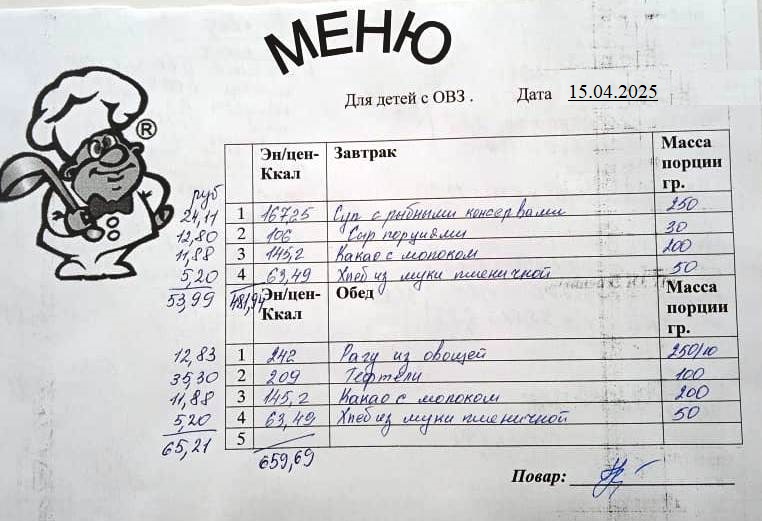 МЕНЮ
Для детей с ОВЗ . Дата 15.04.2025
®
руб Эн/цен-Ккал Завтрак Масса порции гр.
24,11 1 167,25 Суп с рыбными консервами 250
12,80 2 106 Сыр порциями 30
11,88 3 145,2 Какао с молоком 200
5,20 4 63,49 Хлеб из муки пшеничной 50
53,99 481,94 Эн/цен-Ккал Обед Масса порции гр.
12,83 1 242 Рагу из овощей 250/10
35,30 2 209 Тефтели 100
11,88 3 145,2 Какао с молоком 200
5,20 4 63,49 Хлеб из муки пшеничной 50
65,21 5
659,69
Повар: